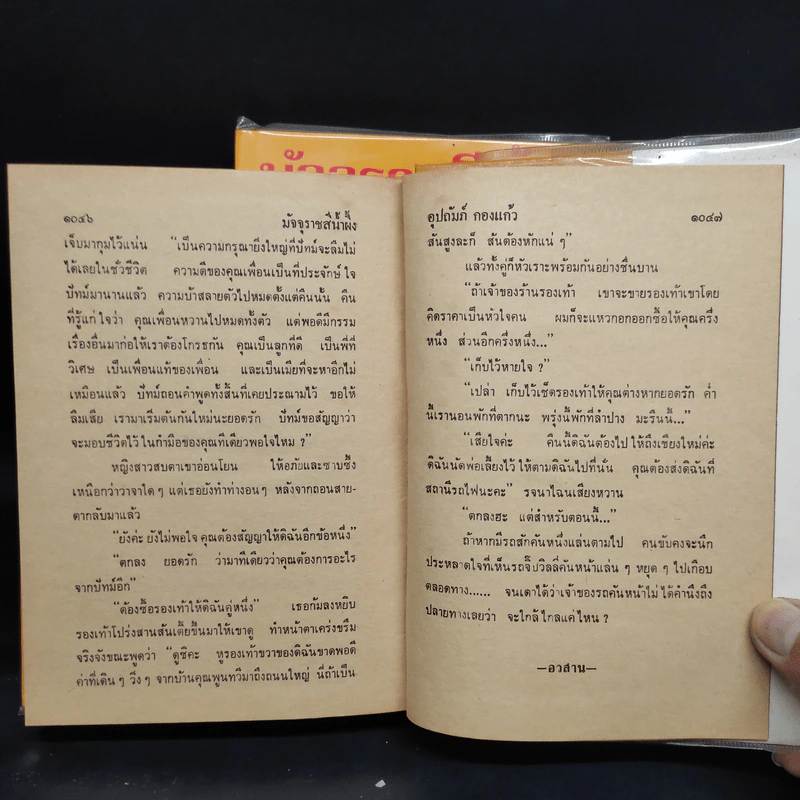 ๑๐๔๖ มัจจุราชสีน้ำผึ้ง
เจ็บมากุมไว้แน่น “เป็นความกรุณายิ่งใหญ่ที่ปัทม์จะลืมไม่
ได้เลยในชั่วชีวิต ความดีของคุณเพื่อนเป็นที่ประจักษ์ใจ
ปัทม์มานานแล้ว ความบ้าสลายตัวไปหมดตั้งแต่คืนนั้น คืน
ที่รู้แก่ใจว่า คุณเพื่อนหวานไปหมดทั้งตัว แต่พอดีมีกรรม
เรื่องอื่นมาก่อให้เราต้องโกรธกัน คุณเป็นลูกที่ดี เป็นพี่ที่
วิเศษ เป็นเพื่อนแท้ของเพื่อน และเป็นเมียที่จะหาอีกไม่
เหมือนแล้ว ปัทม์ถอนคำพูดทั้งสิ้นที่เคยประณามไว้ ขอให้
ลืมเสีย เรามาเริ่มต้นกันใหม่นะยอดรัก ปัทม์ขอสัญญาว่า
จะมอบชีวิตไว้ในกำมือของคุณทีเดียวพอใจไหม ?”
หญิงสาวสบตาเขาอ่อนโยน ให้อภัยและซาบซึ้ง
เหนือกว่าวาจาใด ๆ แต่เธอยังทำท่างอน ๆ หลังจากถอนสาย-
ตากลับมาแล้ว
“ยังค่ะ ยังไม่พอใจ คุณต้องสัญญาให้ดิฉันอีกข้อหนึ่ง”
“ตกลง ยอดรัก ว่ามาทีเดียวว่าคุณต้องการอะไร
จากปัทม์อีก”
“ต้องซื้อรองเท้าให้ดิฉันคู่หนึ่ง” เธอก้มลงหยิบ
รองเท้าโปร่งสานส้นเตี้ยขึ้นมาให้เขาดู ทำหน้าตาเคร่งขรึม
จริงจังขณะพูดว่า “ดูซิคะ หูรองเท้าขวาของดิฉันขาดพอดี
ค่าที่เดิน ๆ วิ่ง ๆ จากบ้านคุณพูนทวีมาถึงถนนใหญ่ นี่ถ้าเป็น
อุปถัมภ์ กองแก้ว ๑๐๔๗
ส้นสูงละก็ ส้นต้องหักแน่ ๆ”
แล้วทั้งคู่ก็หัวเราะพร้อมกันอย่างชื่นบาน
“ถ้าเจ้าของร้านรองเท้า เขาจะขายรองเท้าเขาโดย
คิดราคาเป็นหัวใจคน ผมก็จะแหวกอกออกซื้อให้คุณครึ่ง
หนึ่ง ส่วนอีกครึ่งหนึ่ง...”
“เก็บไว้หายใจ ?”
“เปล่า เก็บไว้เช็ดรองเท้าให้คุณต่างหากยอดรัก ค่ำ
นี้เรานอนพักที่ตากนะ พรุ่งนี้พักที่ลำปาง มะรืนนี้...”
“เสียใจค่ะ คืนนี้ดิฉันต้องไปให้ถึงเชียงใหม่ค่ะ
ดิฉันนัดพ่อเลี้ยงไว้ให้ตามดิฉันไปที่นั่น คุณต้องส่งดิฉันที่
สถานีรถไฟนะคะ” รจนาไฉนเสียงหวาน
“ตกลงฮะ แต่สำหรับตอนนี้...”
ถ้าหากมีรถสักคันหนึ่งแล่นตามไป คนขับคงจะนึก
ประหลาดใจที่เห็นรถจี๊ปวิลลี่คันหน้าแล่น ๆ หยุด ๆ ไปเกือบ
ตลอดทาง...... จนเดาได้ว่าเจ้าของรถคันหน้าไม่ได้คำนึงถึง
ปลายทางเลยว่า จะใกล้ไกลแค่ไหน ?
—อวสาน—